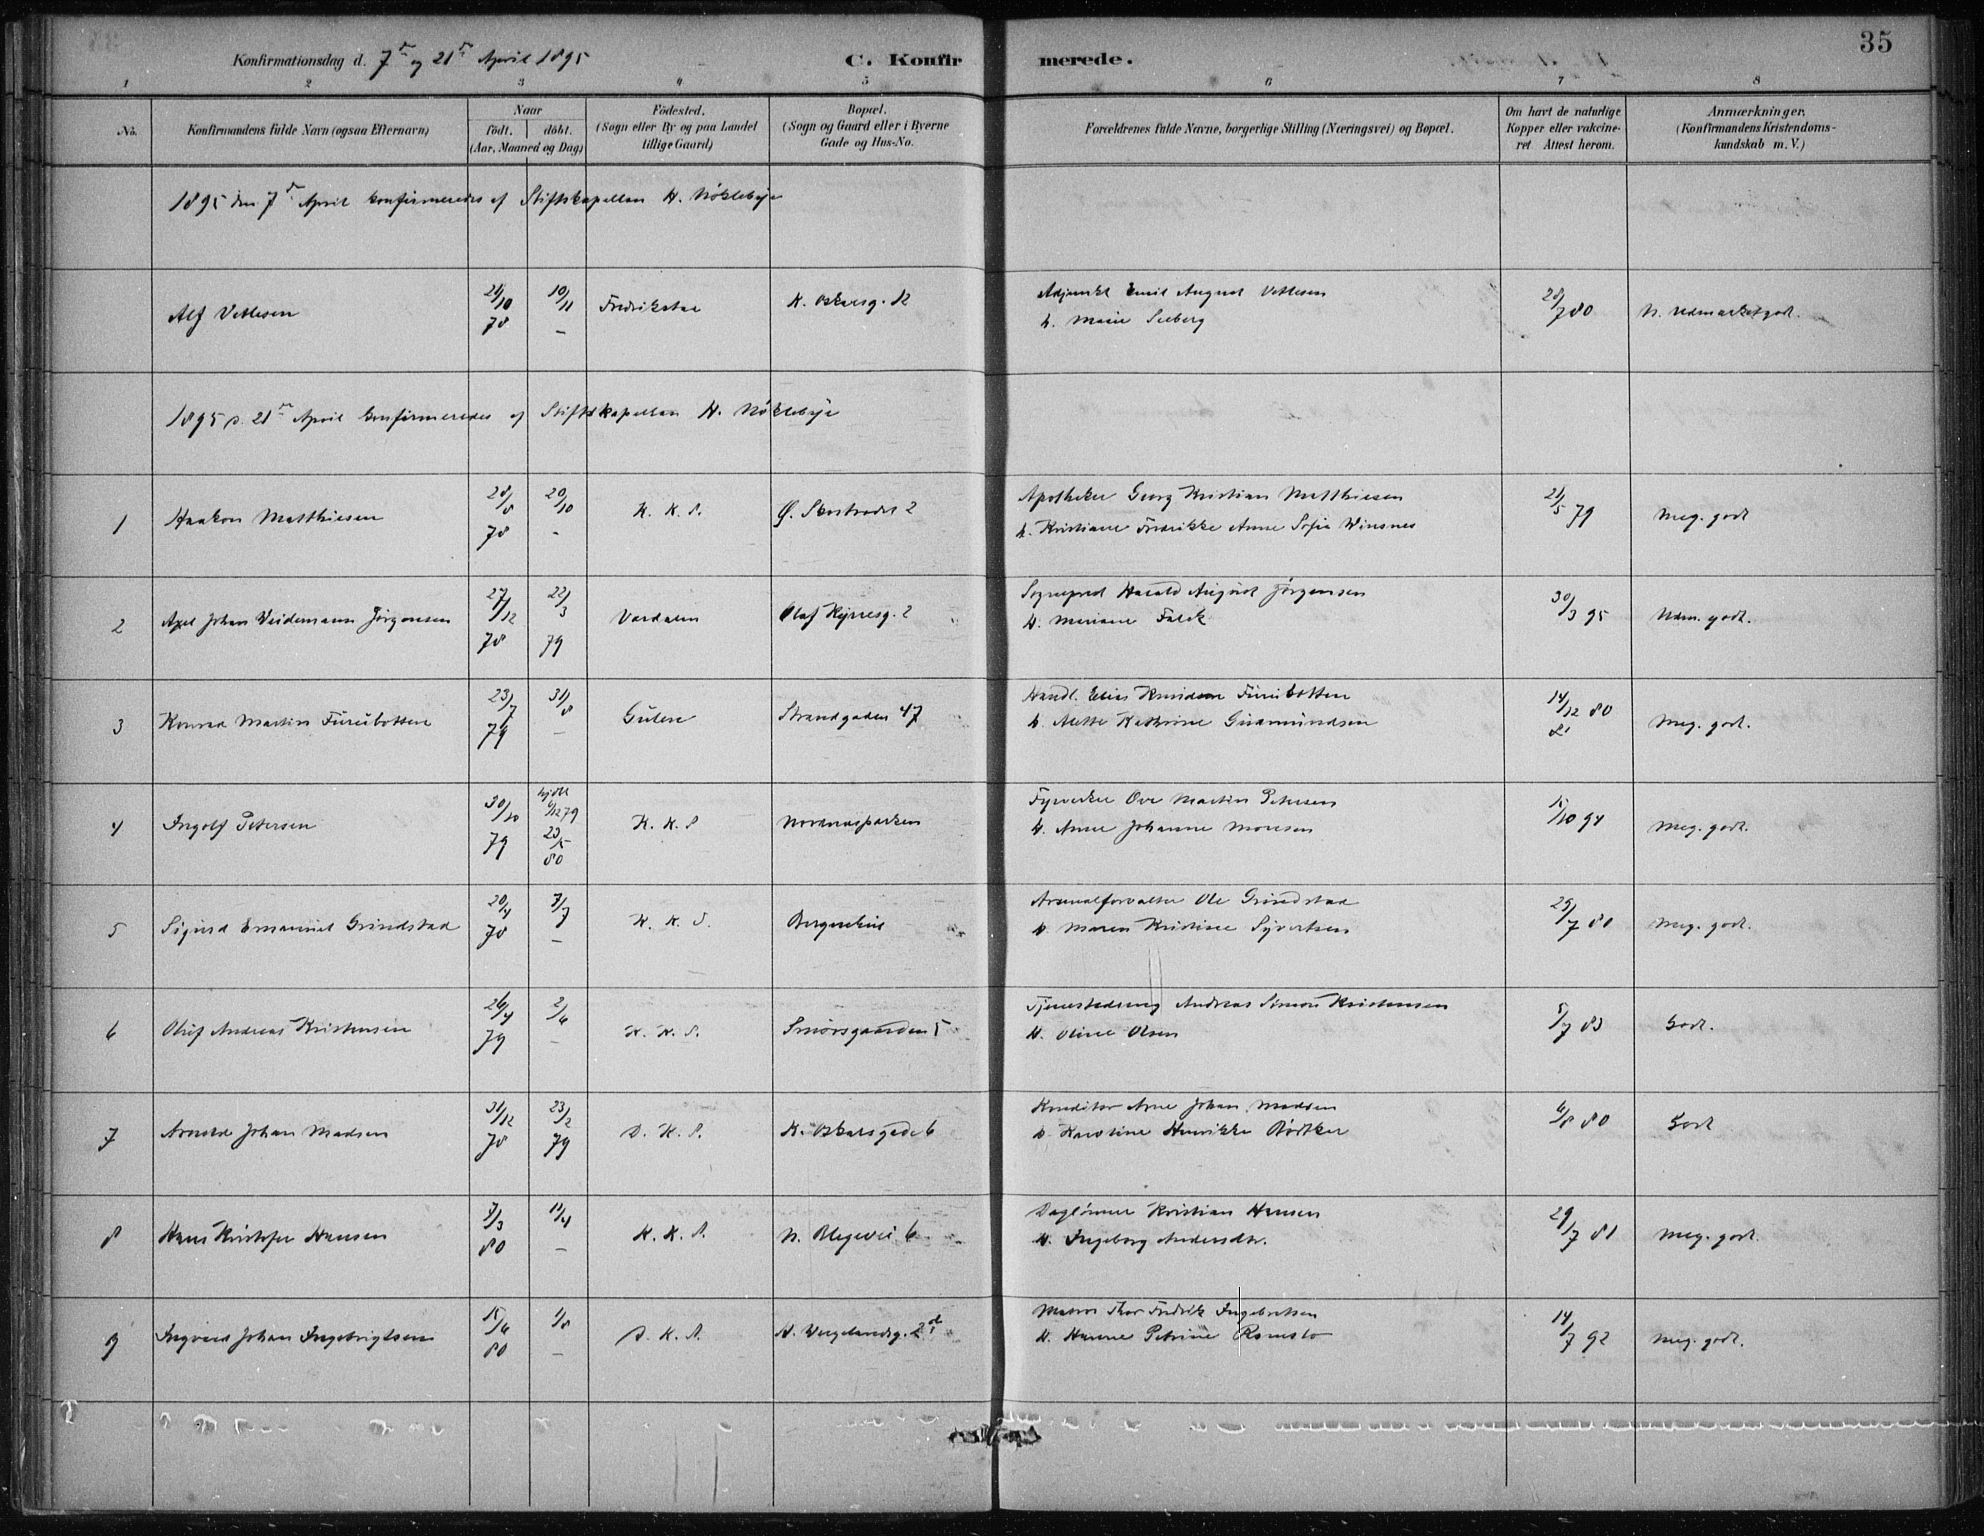 35
Konfirmationsdag d. 7de og 21de April 1895
C. Konfirmerede.
1 2 3 4 5 6 7 8
No.
Konfirmandens fulde Navn (ogsaa Efternavn)
Naar
födt. döbt.
(Aar, Maaned og Dag)
Födested.
(Sogn eller By og paa Landet
tillige Gaard)
Bopæl.
(Sogn og Gaard eller i Byerne
Gade og Hus-No.
Forældrenes fulde Navne, borgerlige Stilling (Næringsvei) og Bopæl.
Om havt de naturlige
Kopper eller vakcine-
ret Attest herom.
Anmærkninger,
(Konfirmandens Kristendoms-
kundskab m. V.)
1895 den 7de April konfirmeredes af Stiftskapellan H. Nöklebye
Alf Vetlesen 24/10 78 10/11 – Fredrikstad K. Oskarsg. 12
Adjunkt Emil August Vetlesen
h. Marie Seeberg
28/7 80 N. Udmærket godt.
1895 d. 21de April konfirmeredes af Stiftskapellan H. Nöklebye
1 Haakon Matthiesen 28/8 78 20/10 - K. K. S. Ø. Skostrædet 2
Apotheker Georg Kristian Matthiesen
h. Kristiane Fredrikke Anne Sofie Winsnes
21/5 79 Meg. godt
2 Axel Johan Weidemann Jörgensen 27/12 78 22/3 79 Værdalen Olaf Kyrresg. 2
Sognepræst Harald August Jörgensen
h. Mariane Falck
30/3 95 Udm. godt.
3 Konrad Martin Furebotten 23/7 79 31/8 – Gulen Strandgaden 47
Handl. Elias Knudsen Furebotten
h. Mette Kathrine Gudmundsen
14/12 80 Meg. godt.
4 Ingolf Petersen 30/10 79 hjdbt 6/12 79 23/5 80 K. K. S Nordnæsparken
Fyrverker Ove Martin Petersen
h. Anne Johanne Monsen
15/10 94 Meg. godt.
5 Sigurd Emanuel Grindstad 20/4 78 7/7 – K. K. S. Bergenhus
Arsenalforvalter Ole Grindstad
h. Maren Kristine Syvertsen
29/7 80 Meg. godt.
6 Oluf Andreas Kristensen 26/4 79 2/6 – K. K. S. Smörsgaarden 5
Andreas Simon Kristensen
h. Oline Olsen
5/7 83 Godt.
7 Arnold Johan Madsen 31/12 78 23/2 79 D. K. S. K. Oskarsgade 6
Konditor Arne Johan Madsen
h. Karoline Henrikke Bödtker
6/8 80 Godt
8 Hans Kristofer Hansen 7/3 80 11/4 – K. K. S. N. Blegevei 6
Daglönner Kristian Hansen
h. Ingeborg Andersdtr.
29/7 81 Meg. godt.
9 Ingvald Johan Ingebrigtsen 15/6 80 1/8 – D. K. S. H. Wergelandsg. 2d
Matros Thor Fredrik Ingebretsen
h. Hanne Petrine Romslo
14/7 92 Meg. godt.